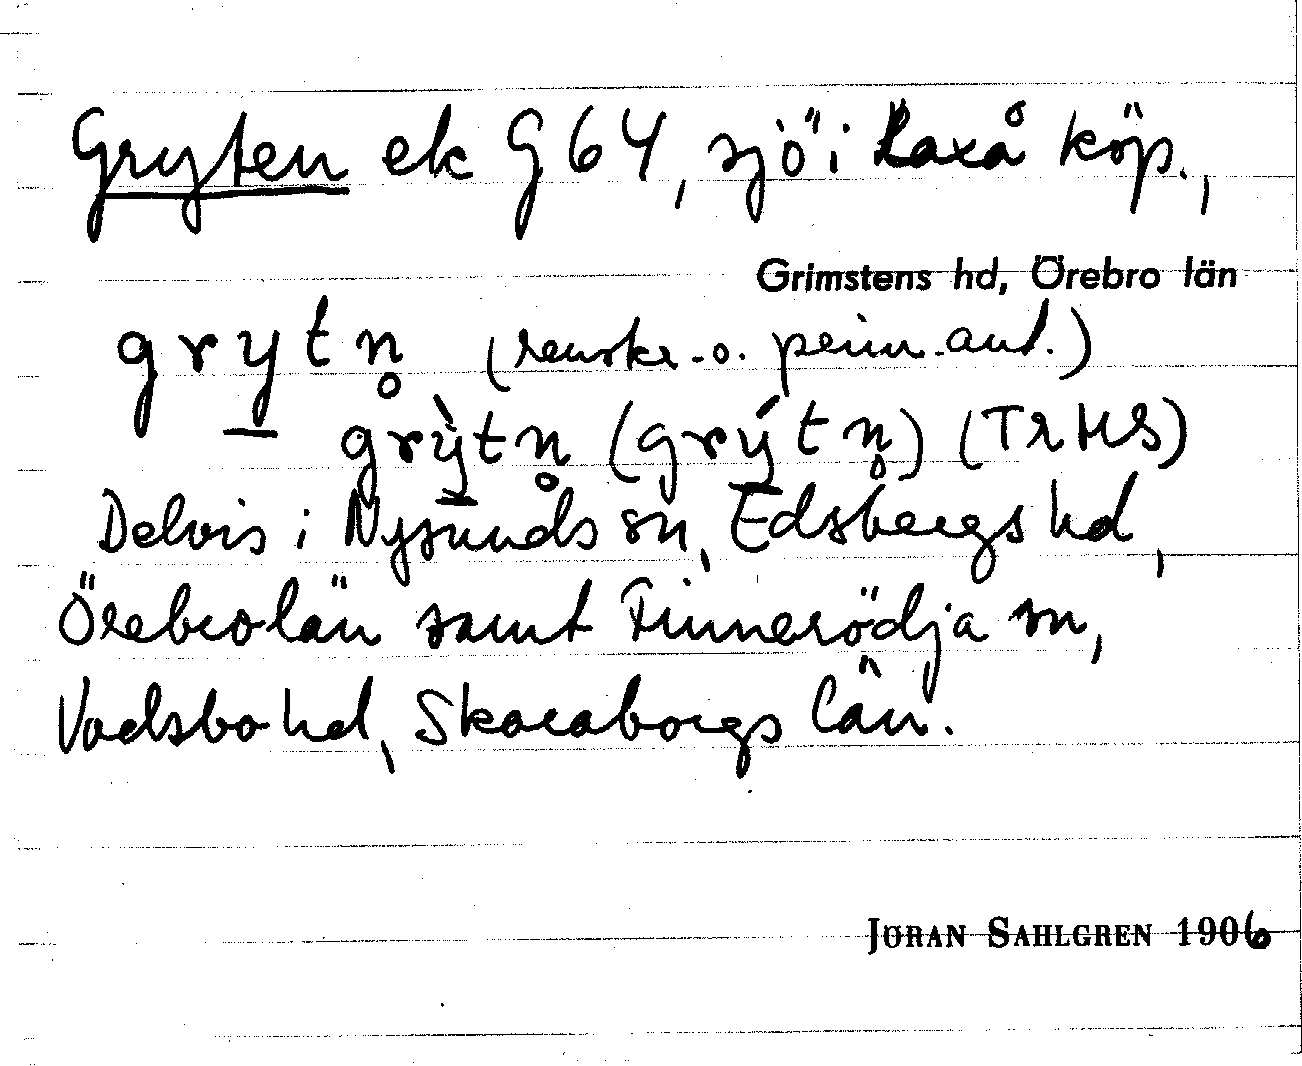 Gryten ek G64, sjö i Laxå köp.,
Grimstens hd, Örebro län
grytn̥ (renskr. o. penn.ant.)
grỳtn̥ (grýtn̥) (TrHS)
Delvis i Nysunds sn, Edsbergs hd,
Örebro län samt Finnerödja sn,
Vadsbo hd, Skaraborgs län.
JÖRAN SAHLGREN 1906